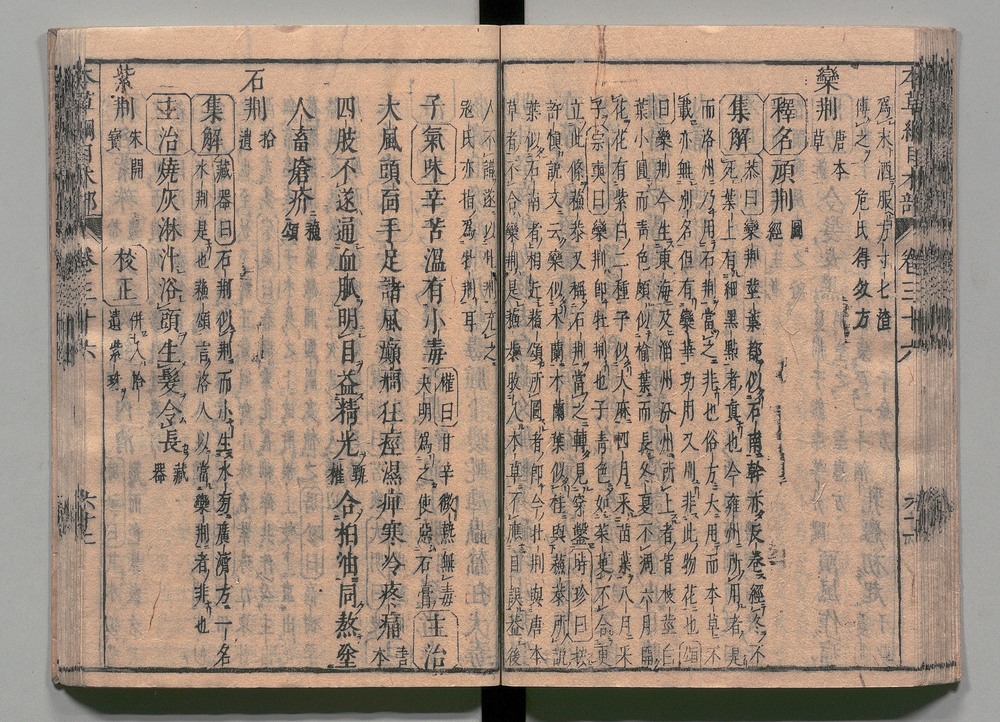 為末酒服方寸匕渣
傅之 危氏得效方
欒荆 唐本
草
釋名頑荆 圖
經
集解 恭曰欒荆莖葉都似石南幹亦反卷經冬不
死葉上有細黑點者真也今雍州所用者是
而洛州乃用石荆當之非也俗方大用而本草不
載亦無別名但有欒華功用又別非此物花也頌
曰欒荆今生東海及淄州汾州所上者皆枝莖白
葉小圓而青色頗似榆葉而長冬夏不凋六月開
花花有紫白二種子似大麻四月采苗葉八月采
子宗奭曰欒荆即牡荆也子青色如茱萸不合更
立此條蘇恭又稱石荆當之轉見穿鑿時珍曰按
許慎說文云欒似木蘭木蘭葉似桂與蘇恭所說
葉似石南者相近蘇頌所圖者即今牡荆與唐本
草者不合欒荆是蘇恭收入本草不應自誤蓋後
人不識遂以牡荆充之
寇氏亦指為牡荆耳
子氣味辛苦溫有小毒 權曰甘辛微熱無毒
夬明為之使惡石膏 主治
大風頭面手足諸風癲癎狂痙濕痹寒冷疼痛 唐
本
四肢不遂通血脈明目益精光 甄
權 合桕油同熬塗
人畜瘡疥 蘇
頌
石荆 拾
遺
集解 藏器曰石荆似荆而小生水旁廣濟方一名
水荆是也蘇頌言洛人以當欒荆者非也
主治燒灰淋汁浴頭生髮令長 藏
器
紫荆 宋開
寶 校正 併入拾
遺紫珠
本草綱目木部 卷三十六